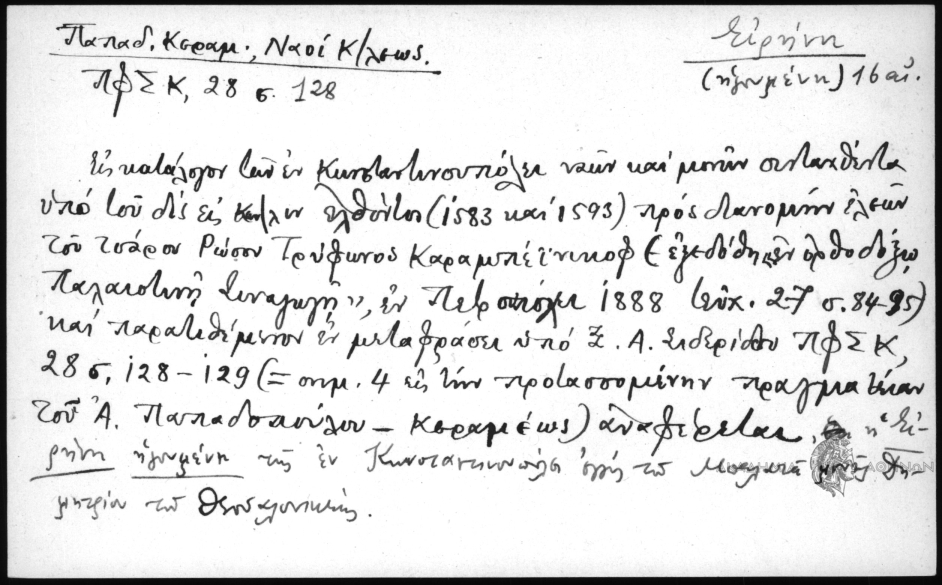 Παπαδ. Κεραμ., Ναοί Κ/λεως.
Εἰρήνη
ΠΦΣΚ, 28 σ. 128
(ἡγουμένη) 16 αἰ.
Εἰς κατάλογον τῶν ἐν Κωνσταντινουπόλει ναῶν καί μονῶν συνταχθέντα
ὑπό τοῦ δίς εἰς Κων/λιν ἐλθόντος (1583 καί 1593) πρός διανομήν ἐλεῶν
τοῦ τσάρου Ρώσου Τρύφωνος Καραμπέϊνικοφ (ἐξεδόθη „ἐν ὀρθοδόξῳ
Παλαιστινῇ Συναγωγῇ”, ἐν Πετρουπόλει 1888 τεῦχ. 27 σ. 84-95)
καί παρατιθέμενον ἐν μεταφράσει ὑπό Ξ. Α. Σιδερίδου ΠΦΣΚ,
28 σ. 128-129 (= σημ. 4 εἰς τήν προτασσομένην πραγματείαν
τοῦ Ἀ. Παπαδοπούλου - Κεραμέως) ἀναφέρεται ἡ Εἰ-
ρήνη ἡγουμένη τῆς ἐν Κωνσταντινουπόλει τοῦ μονῆς Δη-
μητρίου τοῦ Θεσσαλονικέως.